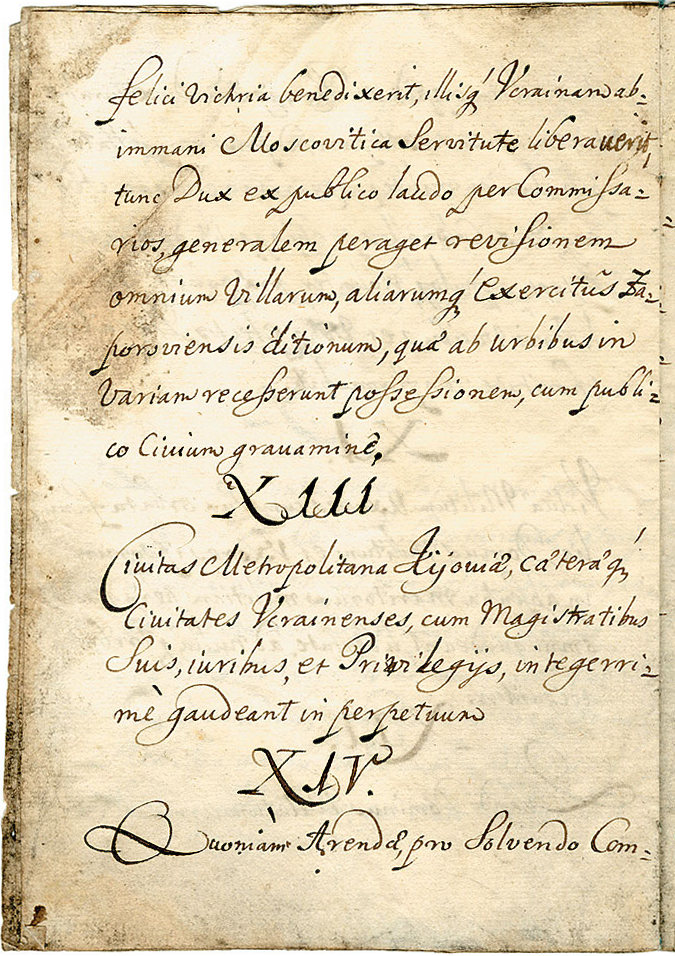 felici Victoria benedixerit, illisq́ Vcrainam ab-
immani Moscovitica Servitute liberauerit,
tunc Dux ex publico laudo per Commissa-
rios, generalem peraget revisionem
omnium Villarum, aliarumq́ Exercitûs Za-
poroviensis ditionum, quæ ab urbibus in
Variam recesserunt possessionem, cum publi-
co Civium grauamine,
XIII
Civitas Metropolitana Kijoviæ, cæteræq́
Civitates Vcrainenses, cum Magistratibus
Suis, iuribus, et Privilegijs, integerri-
mè gaudeant in perpetuum
XIV.
Quoniàm Arendæ, pro Solvendo Com-